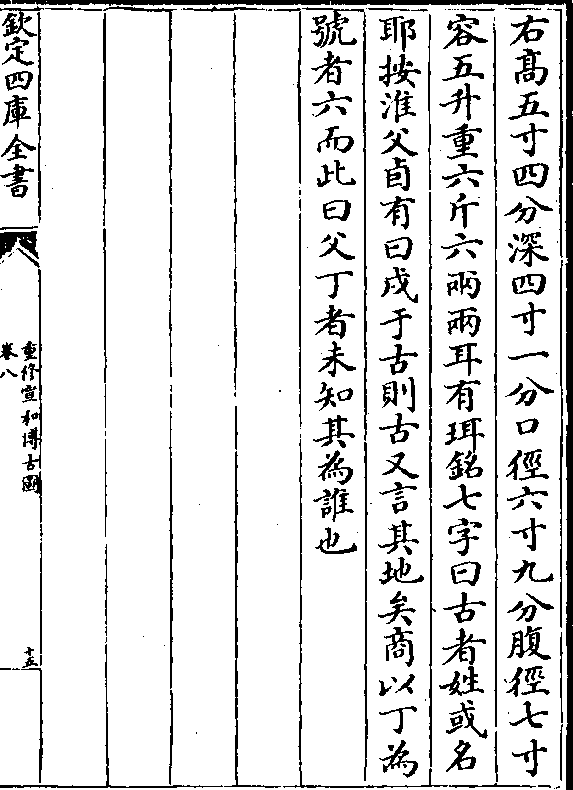 右髙五寸四分深四寸一分口徑六寸九分腹徑七寸
容五升重六斤六兩兩耳有珥銘七字曰古者姓或名
耶按淮父卣有曰戍于古則古又言其地矣商以丁為
號者六而此曰父丁者未知其為誰也
欽定四庫全書
重修宣和博古圖
卷八
十五